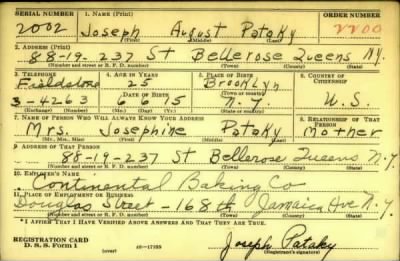 SERIAL NUMBER 1. NAME (Print) ORDER NUMBER
2002 Joseph August Pataky 2200
(First) (Middle) (Last)
2. ADDRESS (Print)
88-19-237 St Bellerose Queens N.Y.
(Number and street or R. F. D. number) (Town) (County) (State)
3. TELEPHONE 4. AGE IN YEARS 5. PLACE OF BIRTH 6. COUNTRY OF CITIZENSHIP
Fieldstone 25 Brooklyn
DATE OF BIRTH (Town or county)
3-4263 6 6 15 N.Y. U.S.
(Exchange) (Number) (Mo.) (Day) (Yr.) (State or country)
7. NAME OF PERSON WHO WILL ALWAYS KNOW YOUR ADDRESS 8. RELATIONSHIP OF THAT PERSON
Mrs. Josephine Pataky Mother
(Mr., Mrs., Miss) (First) (Middle) (Last)
9. ADDRESS OF THAT PERSON
88-19-237 St Bellerose Queens N.Y.
(Number and street or R. F. D. number) (Town) (County) (State)
10. EMPLOYER'S NAME
Continental Baking Co
11. PLACE OF EMPLOYMENT OR BUSINESS
Douglas Street - 168th Jamaica Ave N.Y.
(Number and street or R. F. D. number) (Town) (County) (State)
I AFFIRM THAT I HAVE VERIFIED ABOVE ANSWERS AND THAT THEY ARE TRUE.
REGISTRATION CARD
D. S. S. Form 1 (over) 16-17105 Joseph Pataky
(Registrant's signature)